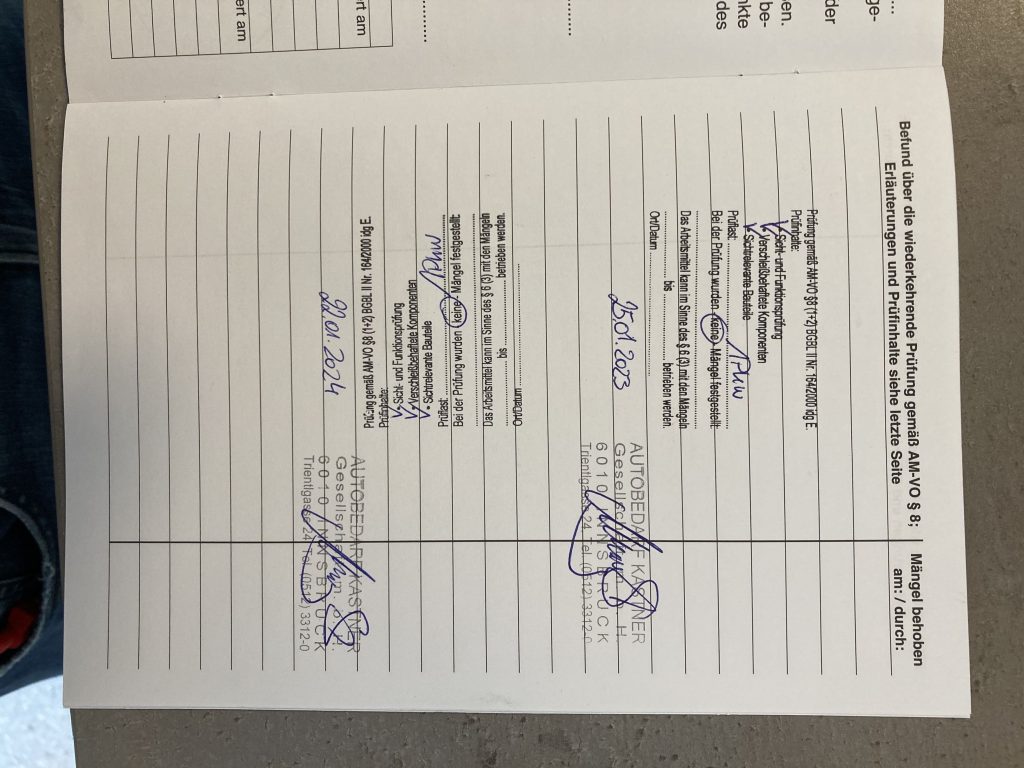 ge-
der
en.
be-
nkte
des
ert am
ert am
Befund über die wiederkehrende Prüfung gemäß AM-VO § 8;
Erläuterungen und Prüfinhalte siehe letzte Seite
Mängel behoben
am: / durch:
Prüfung gemäß AM-VO §8 (1+2) BGBl. II Nr. 164/2000 idg E.
Prüfinhalte:
Sicht- und Funktionsprüfung
Verschleißbehaftete Komponenten
Sichtrelevante Bauteile
Prüflast: PKW
Bei der Prüfung wurden (keine) Mängel festgestellt:
Das Arbeitsmittel kann im Sinne des § 6 (3) mit den Mängeln
bis betrieben werden.
Ort/Datum
25.01.2023
AUTOBEDARF KASTNER
Gesellschaft m. b. H.
6010 INNSBRUCK
Trientlgasse 24 Tel. (0512) 3312-0
Ort/Datum
bis betrieben werden.
Das Arbeitsmittel kann im Sinne des § 6 (3) mit den Mängeln
Bei der Prüfung wurden keine Mängel festgestellt:
Prüflast:
• Sichtrelevante Bauteile
Verschleißbehaftete Komponenten
Sicht- und Funktionsprüfung
Prüfinhalte:
Prüfung gemäß AM-VO §8 (1+2) BGBl. II Nr. 164/2000 idg E.
22.01.2024
AUTOBEDARF KASTNER
Gesellschaft m. b. H.
6010 INNSBRUCK
Trientlgasse 24 Tel. (0512) 3312-0